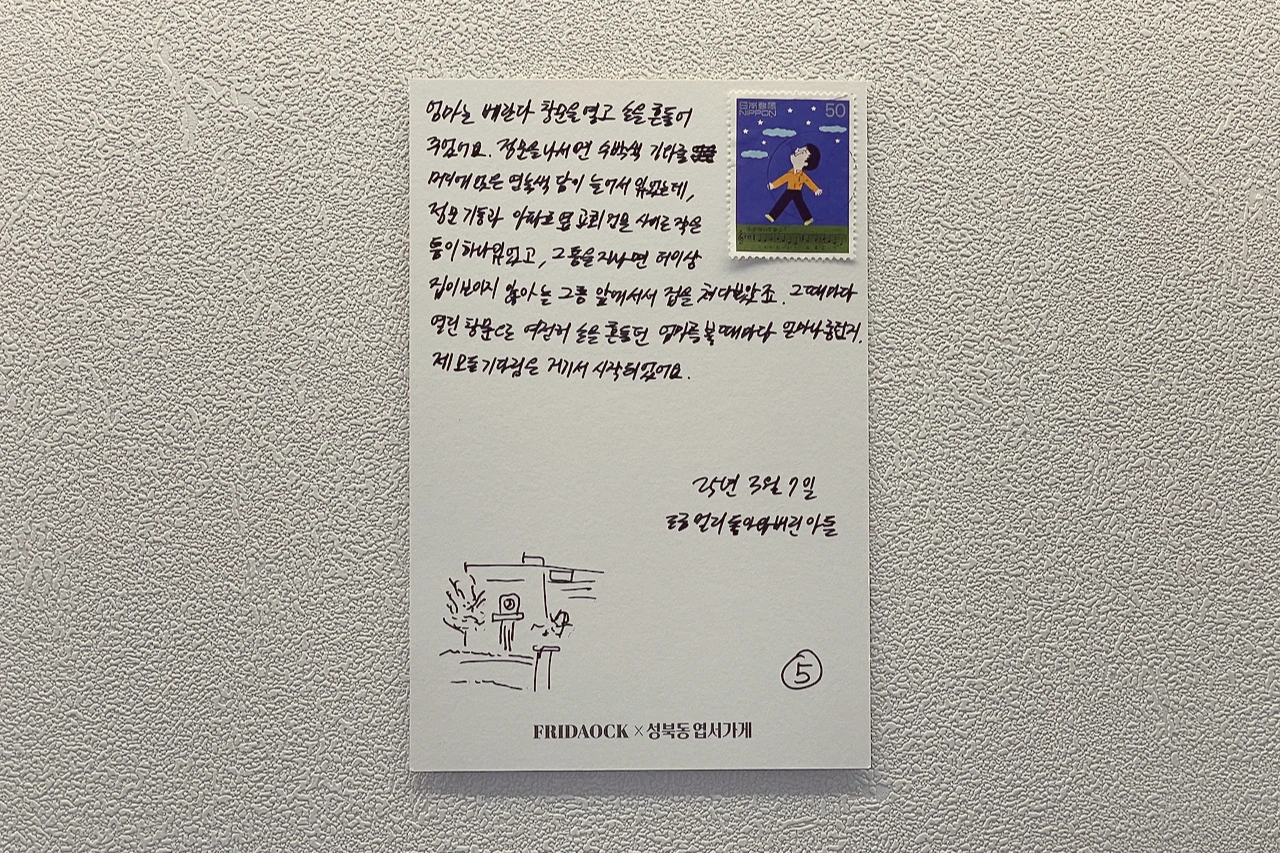 엄마는 베란다 창문을 열고 손을 흔들어
주었어요. 정문을 나서면 수박색 기와를
머리에 얹은 연녹색 담이 늘어서 있었는데,
정문 기둥과 아파트 옆 교회 건물 사이로 작은
틈이 하나 있었고, 그 틈을 지나면 더이상
집이 보이지 않아 늘 그 틈 앞에 서서 집을 쳐다봤죠. 그때마다
열린 창문으로 여전히 손을 흔들던 엄마를 볼 때마다 얼마나 좋던지.
제 모든 기다림은 거기서 시작되었어요.
25년 3월 7일
멀리 돌아와버린 아들
日本郵便
NIPPON
50
5
FRIDAOCK × 성북동 엽서가게